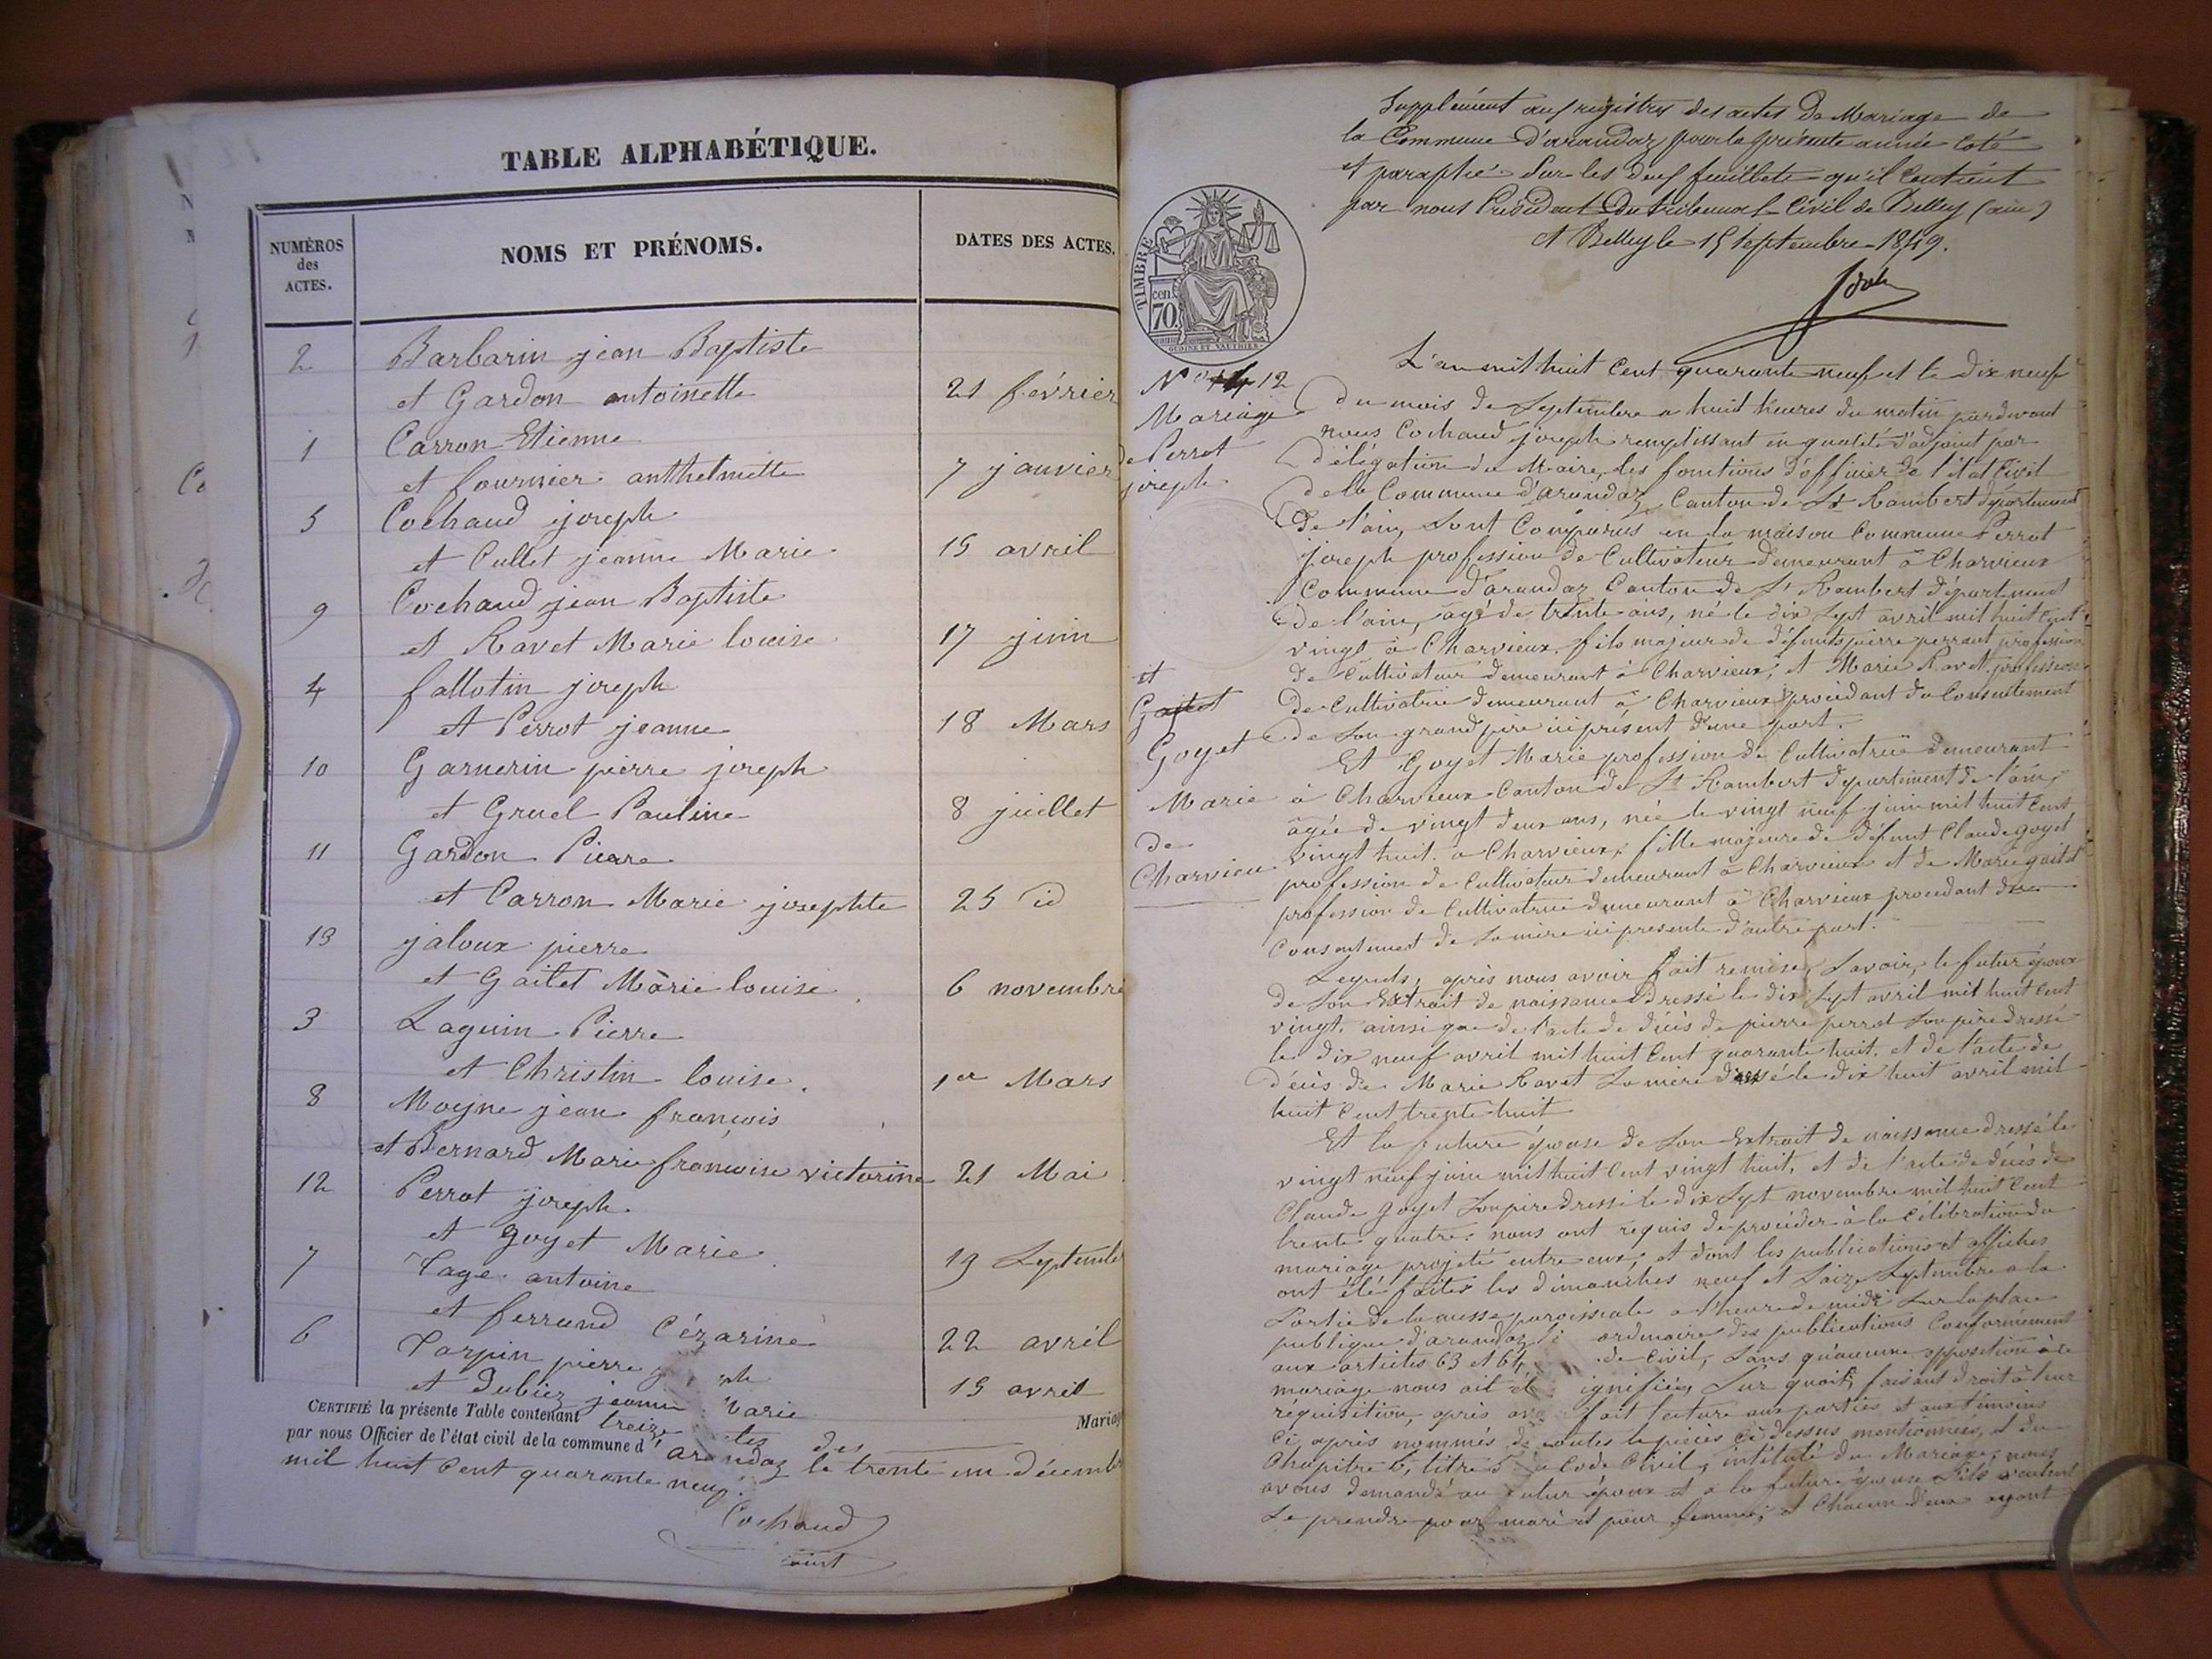 TABLE ALPHABÉTIQUE.
NUMÉROS des ACTES.
NOMS ET PRÉNOMS.
DATES DES ACTES.
2 Barbarin jean Baptiste
et Gardon antoinette 21 février
1 Carron Etienne
et fournier anthelmette 7 janvier
5 Cochaud joseph
et Cullet jeanne Marie 15 avril
9 Cochaud jean Baptiste
et Ravet Marie louise 17 juin
4 fallotin joseph
et Perrot jeanne 18 Mars
10 Garnerin pierre joseph
et Gruel Pauline 8 juillet
11 Gardon Pierre
et Carron Marie josephte 25 id
13 jaloux pierre
et Gaitet Marie louise 6 novembre
3 Laguin Pierre
et Christin louise 1er Mars
8 Moyne jean françois
et Bernard Marie françoise victorine 21 Mai
12 Perrot joseph
et goyet Marie 19 Septemb
7 Tage antoine
et ferrand Cézarine 22 avril
6 Tarpin pierre
et Dubiez jeanne Marie 15 avril
CERTIFIÉ la présente Table contenant treize des Mariag
par nous Officier de l'état civil de la commune d'arandaz le trente un décemb
mil huit cent quarante neuf.
Cochaud
Supplément aux registres des actes de Mariage de
la Commune d'arandaz pour la présente année coté
et paraphé sur les deux feuillets qu'il contient
par nous Président du tribunal civil de Belley (ain)
A Belley le 15 septembre 1849.
TIMBRE
70 cen.
OUDINÉ ET VAUTHIER
N° 12
Mariage
de Perrot
joseph
et
Gaitet
Goyet
Marie
de
Charvieu
L'an mil huit cent quarante neuf et le dix neuf
du mois de Septembre a huit heures du matin pardevant
nous Cochaud joseph remplissant en qualité d'adjoint par
délégation du Maire, les fonctions d'officier de l'état civil
de la Commune d'arandaz, Canton de St Rambert département
de l'ain, sont comparus en la maison commune Perrot
joseph profession de Cultivateur demeurant à Charvieux
Commune d'arandaz Canton de St Rambert département
de l'ain, agé de trente ans, né le dix sept avril mil huit cent
vingt à Charvieux, fils majeur de défunts pierre perrot profession
de Cultivateur demeurant à Charvieux, et Marie Ravet profession
de Cultivatrice demeurant à Charvieux procédant du consentement
de son grand père ici présent d'une part.
Et Goyet Marie profession de Cultivatrice demeurant
à Charvieux Canton de St Rambert département de l'ain,
agée de vingt deux ans, née le vingt neuf juin mil huit cent
vingt huit à Charvieux, fille majeure de défunt Claude goyet
profession de Cultivateur demeurant à Charvieux et de Marie gaitet
profession de Cultivatrice demeurant à Charvieux procédant du
consentement de sa mère ici présente d'autre part.
Lequels, après nous avoir fait remise, Savoir, le futur époux
de son Extrait de naissance dressé le dix sept avril mil huit cent
vingt, ainsi que de l'acte de décès de pierre perrot son père dressé
le dix neuf avril mil huit cent quarante huit, et de l'acte de
décès de Marie Ravet sa mère dressé le dix huit avril mil
huit cent trente huit
Et la future épouse de son Extrait de naissance dressé le
vingt neuf juin mil huit cent vingt huit, et de l'acte de décès de
Claude goyet son père dressé le dix sept novembre mil huit cent
trente quatre. nous ont requis de procéder à la célébration du
mariage projeté entre eux, et dont les publications et affiches
ont été faites les dimanches neuf et Saize Septembre a la
Sortie de la messe paroissiale a l'heure de midi sur la place
publique d'arandaz ordinaire des publications conformément
aux articles 63 et 64 de civil, sans qu'aucune opposition à ce
mariage nous ait été ignifiée, sur quoi faisant droit à leur
réquisition, après av fait lecture aux parties et aux témoins
ci après nommés de toutes les pièces ci dessus mentionnées, et du
Chapitre 6, titre 5 code civil, intitulé du Mariage, nous
avons demandé au futur époux et a la future épouse s'ils veulent
se prendre pour mari et pour femme, et chacun d'eux ayant